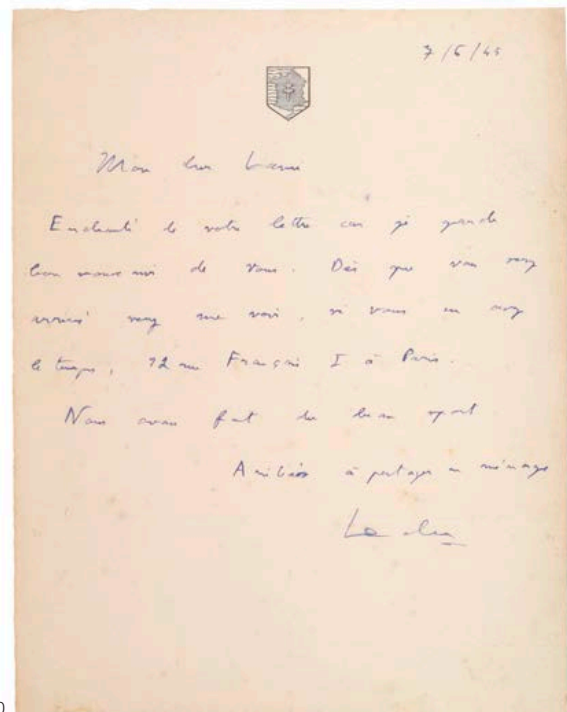 7/6/45
Mon cher
Enchanté de votre lettre car je garde
bon souvenir de vous. Dès que vous serez
venez me voir, si vous en avez
le temps, 12 rue François I à Paris.
Nous avons fait du beau sport
Amitiés à partager en ménage